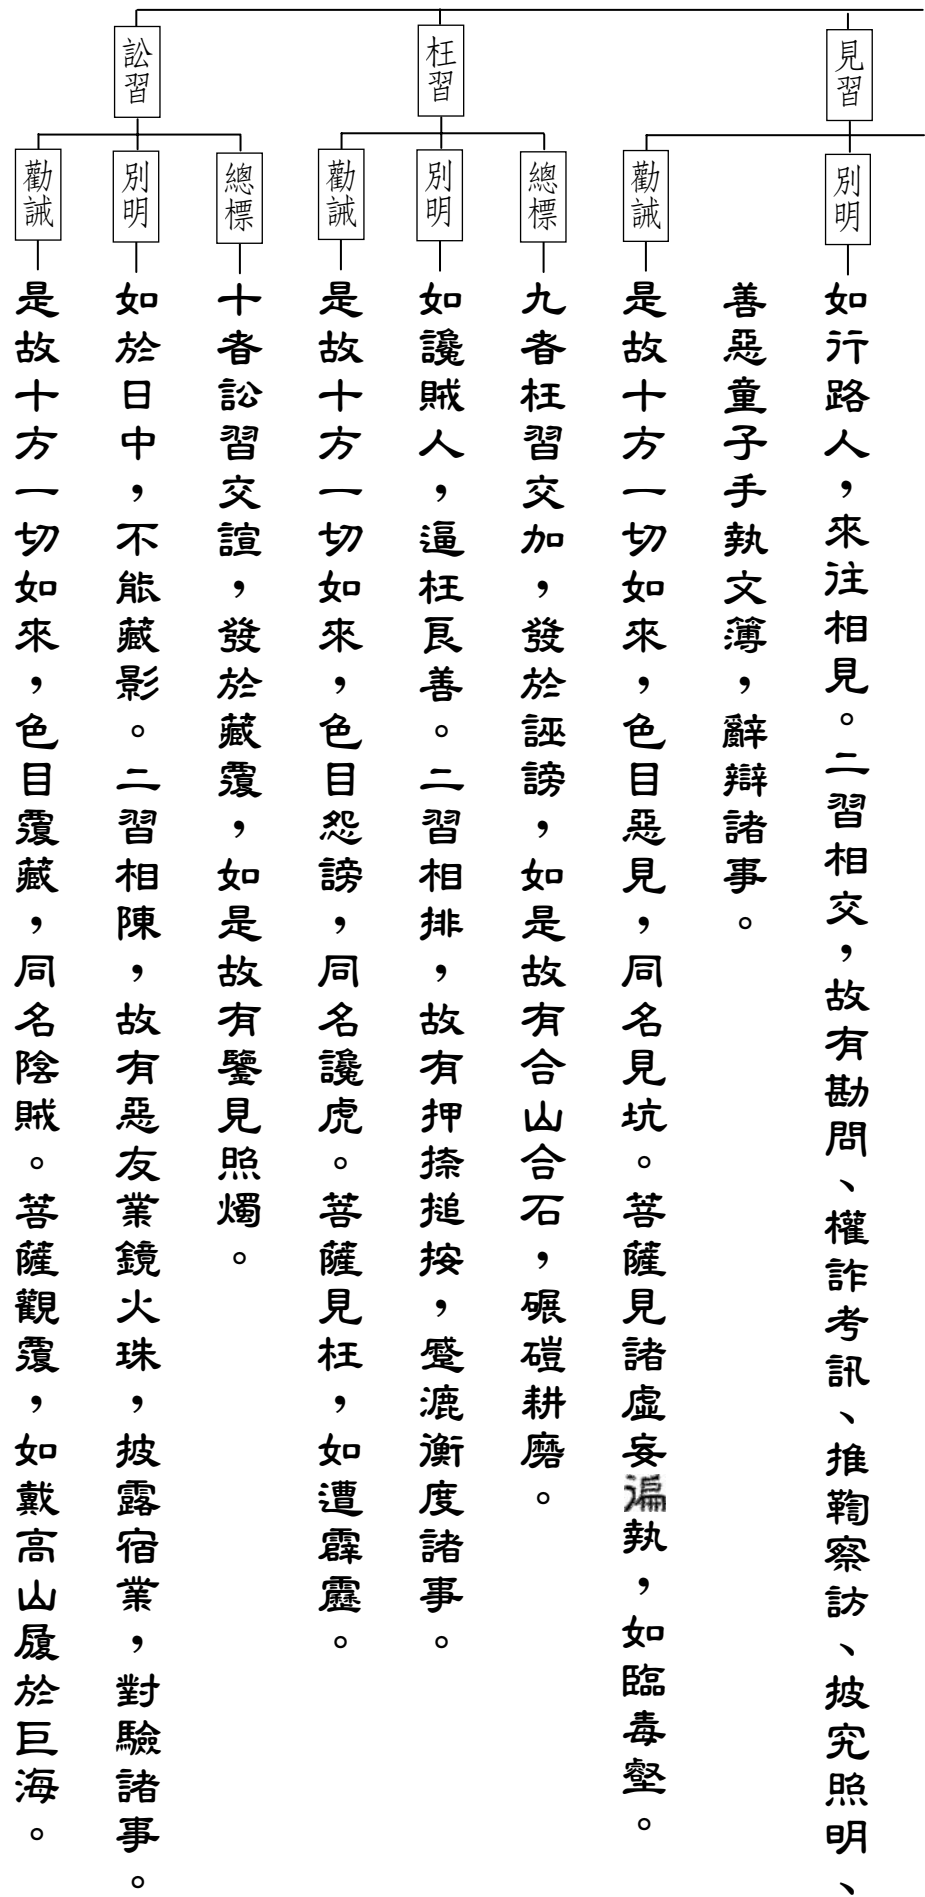 見習
別明
如行路人，來往相見。二習相交，故有勘問、權詐考訊、推鞫察訪、披究照明、
善惡童子手執文簿，辭辯諸事。
勸誡
是故十方一切如來，色目惡見，同名見坑。菩薩見諸虛妄徧執，如臨毒壑。
枉習
總標
九者枉習交加，發於誣謗，如是故有合山合石，碾磑耕磨。
別明
如讒賊人，逼枉良善。二習相排，故有押捺搥按，蹙漉衡度諸事。
勸誡
是故十方一切如來，色目怨謗，同名讒虎。菩薩見枉，如遭霹靂。
訟習
總標
十者訟習交諠，發於藏覆，如是故有鑒見照燭。
別明
如於日中，不能藏影。二習相陳，故有惡友業鏡火珠，披露宿業，對驗諸事。
勸誡
是故十方一切如來，色目覆藏，同名陰賊。菩薩觀覆，如戴高山履於巨海。